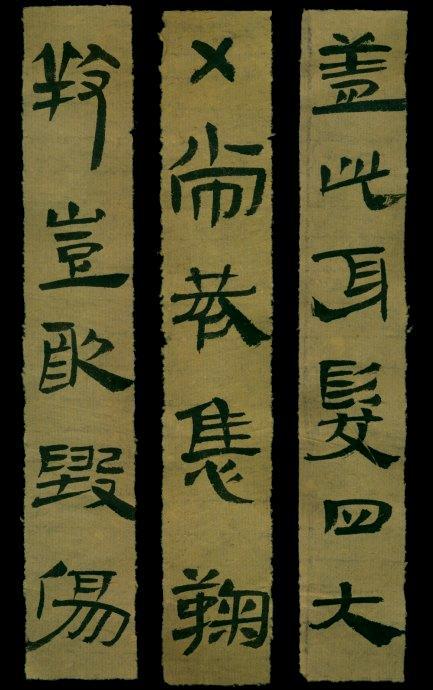 盖此身髮四大
㐅常恭惟鞠
养豈敢毀傷